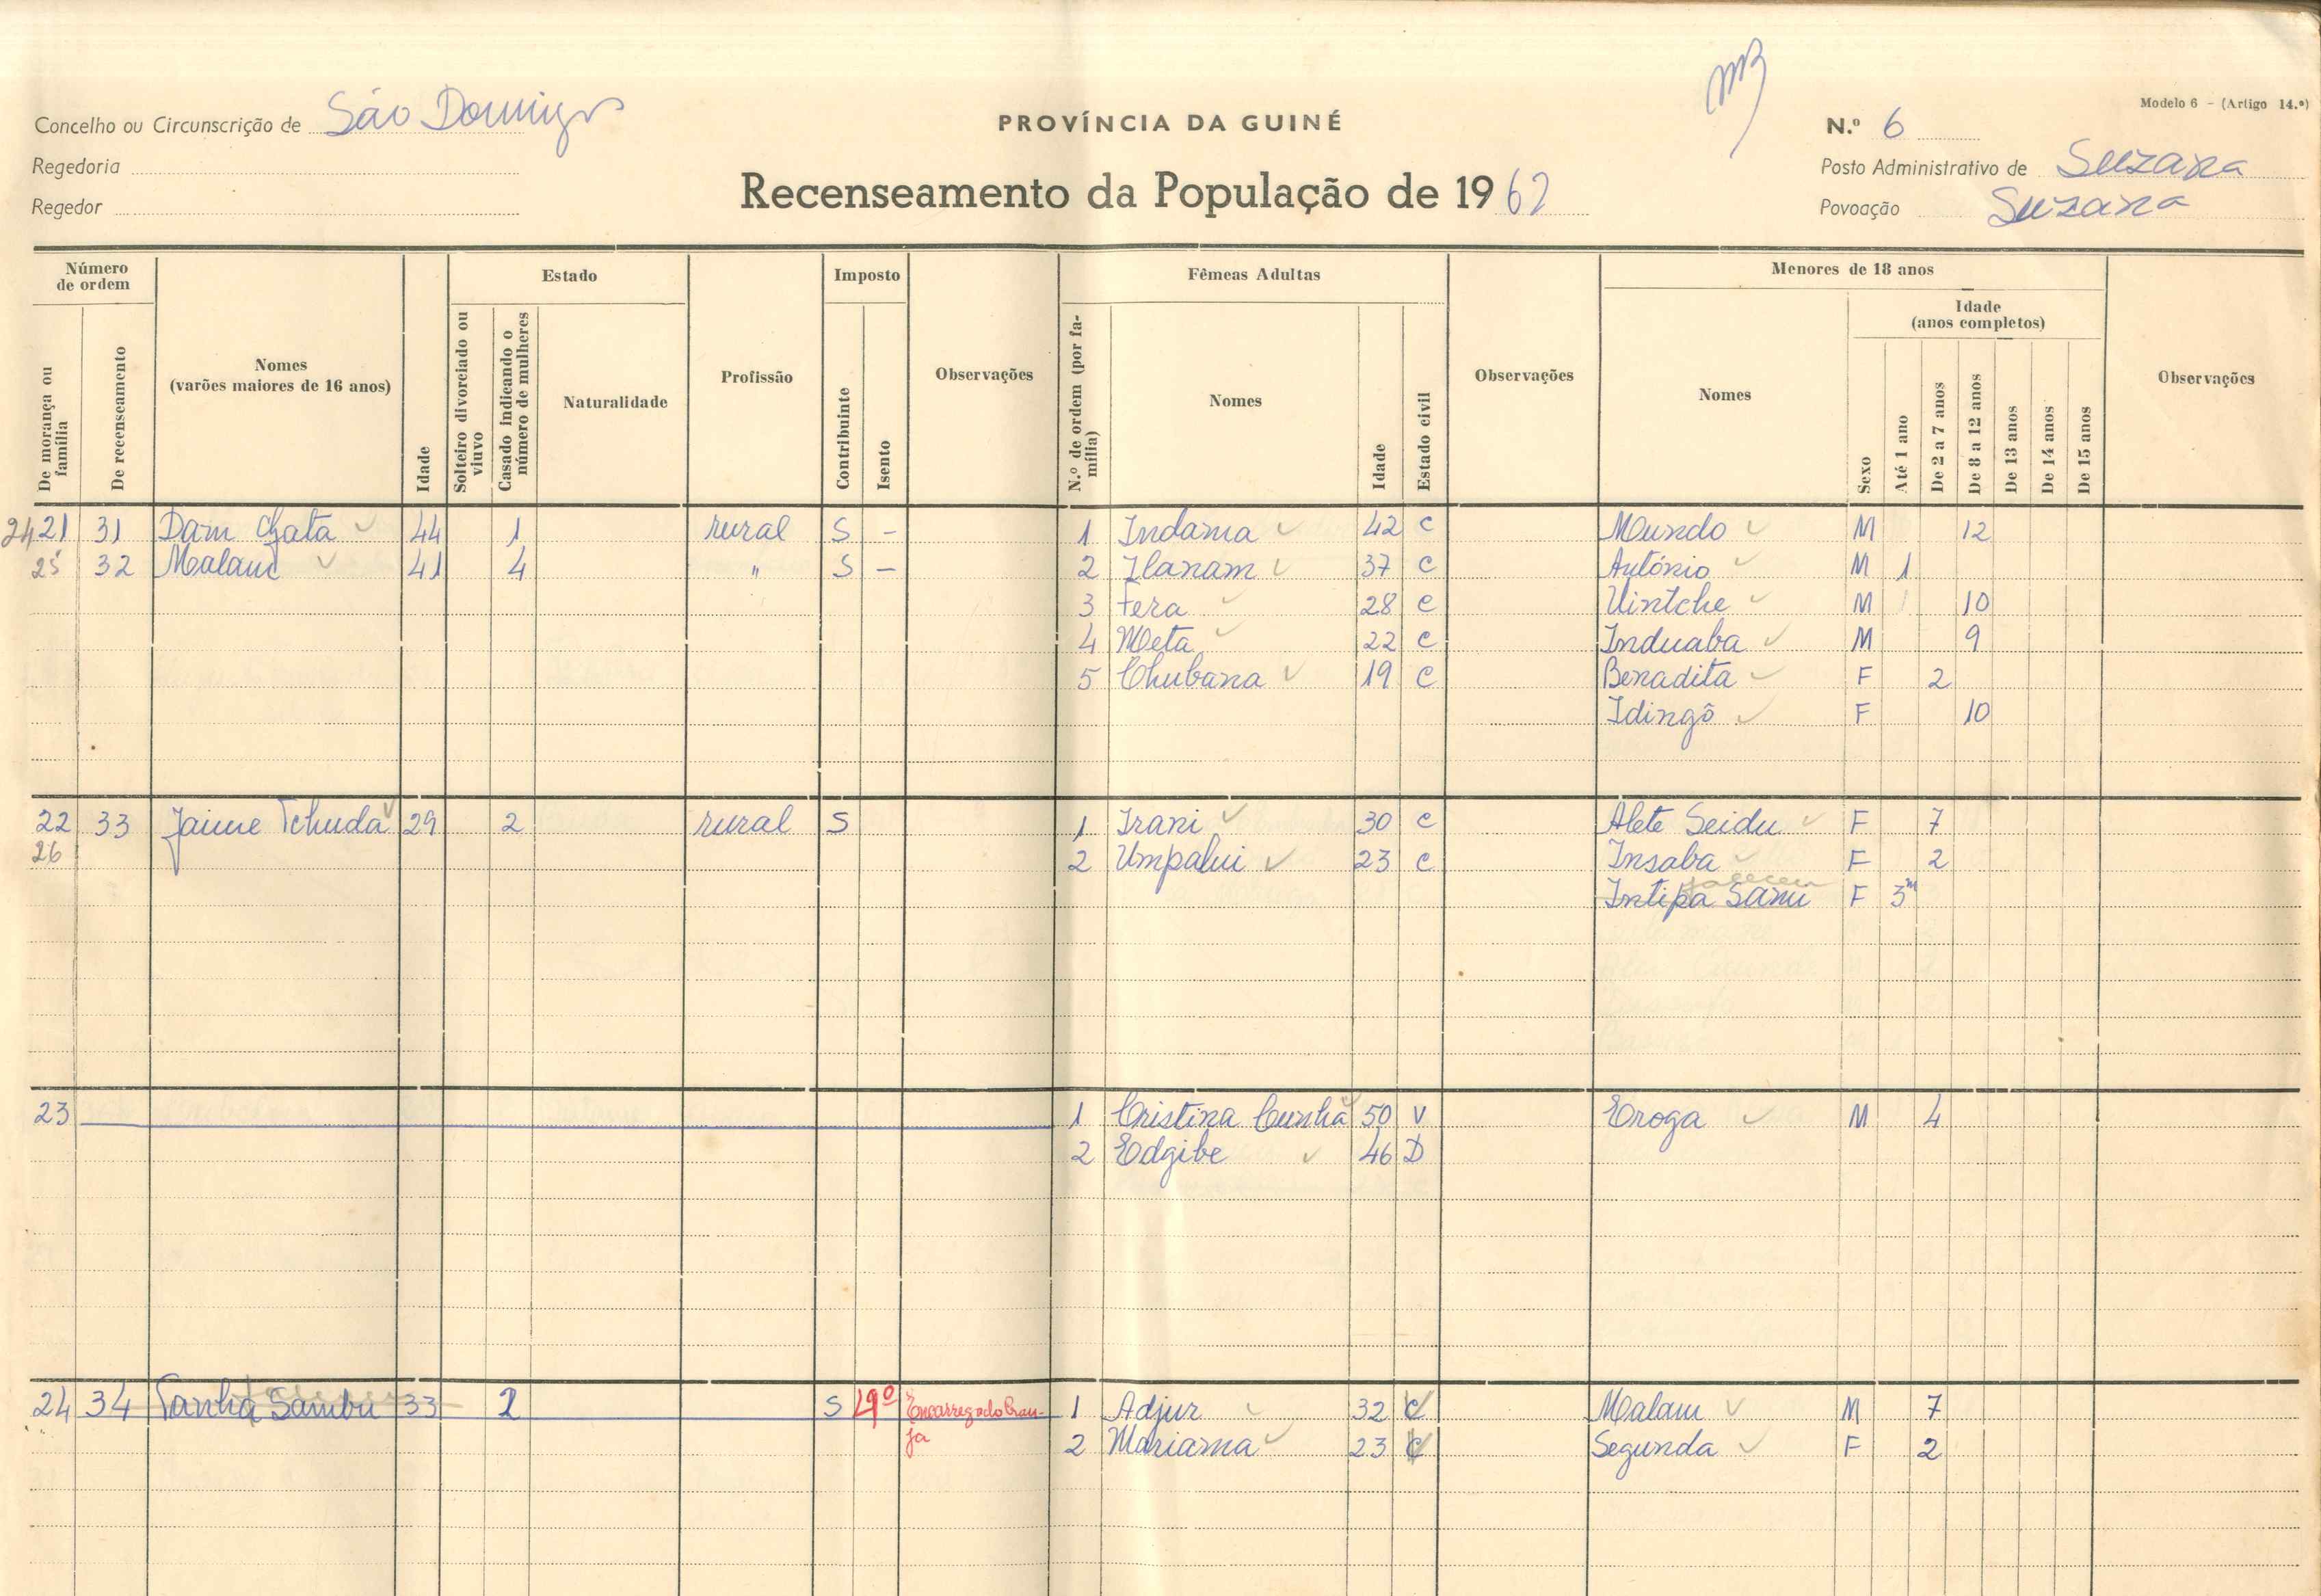 Modelo 6 - (Artigo 14.º)
Concelho ou Circunscrição de São Domingos
PROVÍNCIA DA GUINÉ
N.º 6
Regedoria
Posto Administrativo de Suzana
Regedor
Recenseamento da População de 1962
Povoação Suzana
Número de ordem
Estado
Imposto
Fêmeas Adultas
Menores de 18 anos
Idade (anos completos)
De morança ou família
De recenseamento
Nomes (varões maiores de 16 anos)
Idade
Solteiro divorciado ou viuvo
Casado indicando o número de mulheres
Naturalidade
Profissão
Contribuinte
Isento
Observações
N.º de ordem (por família)
Nomes
Idade
Estado civil
Observações
Nomes
Sexo
Até 1 ano
De 2 a 7 anos
De 8 a 12 anos
De 13 anos
De 14 anos
De 15 anos
Observações
24 21 31 Dam Gata 44 1 rural S - 1 Indama 42 C Mundo M 12
25 32 Malam 41 4 " S - 2 Ilanam 37 C António M 1
3 Fera 28 C Uintche M 10
4 Meta 22 C Induaba M 9
5 Chubana 19 C Benadita F 2
Idingô F 10
22 33 Jaime Tchuda 29 2 rural S 1 Irani 30 C Alete Seidu F 7
26 2 Umpalui 23 C Insaba F 2
Intipa Sanu F 3m
23 1 Cristina Cunha 50 V Eroga M 4
2 Edgibe 46 D
24 34 Sambu 33 2 S 19º Encarregado Gran- 1 Adjur 32 C Malam M 7
ja 2 Mariama 23 C Segunda F 2